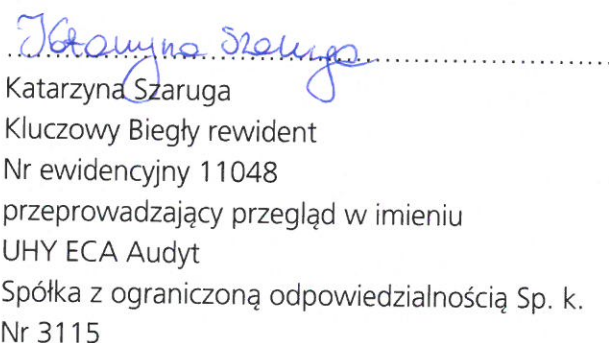 Katarzyna Szaruga
Katarzyna Szaruga
Kluczowy Biegły rewident
Nr ewidencyjny 11048
przeprowadzający przegląd w imieniu
UHY ECA Audyt
Spółka z ograniczoną odpowiedzialnością Sp. k.
Nr 3115